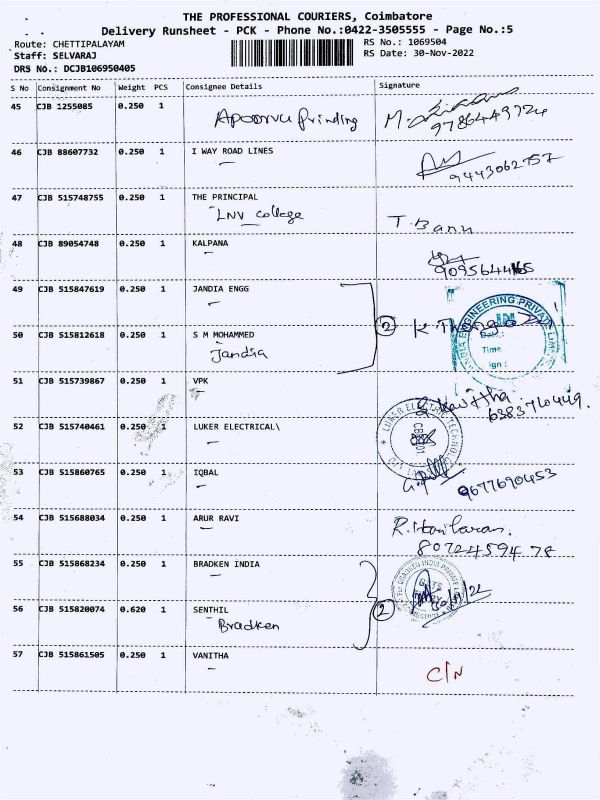 THE PROFESSIONAL COURIERS, Coimbatore
Delivery Runsheet - PCK - Phone No.:0422-3505555 - Page No.:5
Route: CHETTIPALAYAM
RS No.: 1069504
Staff: SELVARAJ
RS Date: 30-Nov-2022
DRS No.: DCJB106950405
S No Consignment No Weight PCS Consignee Details Signature
45 CJB 1255085 0.250 1 Apoorva Prinding
9786449724
46 CJB 88607732 0.250 1 I WAY ROAD LINES
9443062757
47 CJB 515748755 0.250 1 THE PRINCIPAL
LNV college T. Banu
48 CJB 89054748 0.250 1 KALPANA
49 CJB 515847619 0.250 1 JANDIA ENGG
2
50 CJB 515812618 0.250 1 S M MOHAMMED
Jandia
51 CJB 515739867 0.250 1 VPK
Kavitha
6383710449.
52 CJB 515740461 0.250 1 LUKER ELECTRICAL\
53 CJB 515860765 0.250 1 IQBAL
9677690453
54 CJB 515688034 0.250 1 ARUR RAVI
R. Hariharan.
8072459478
55 CJB 515868234 0.250 1 BRADKEN INDIA
2
56 CJB 515820074 0.620 1 SENTHIL
Bradken
57 CJB 515861505 0.250 1 VANITHA
C/N